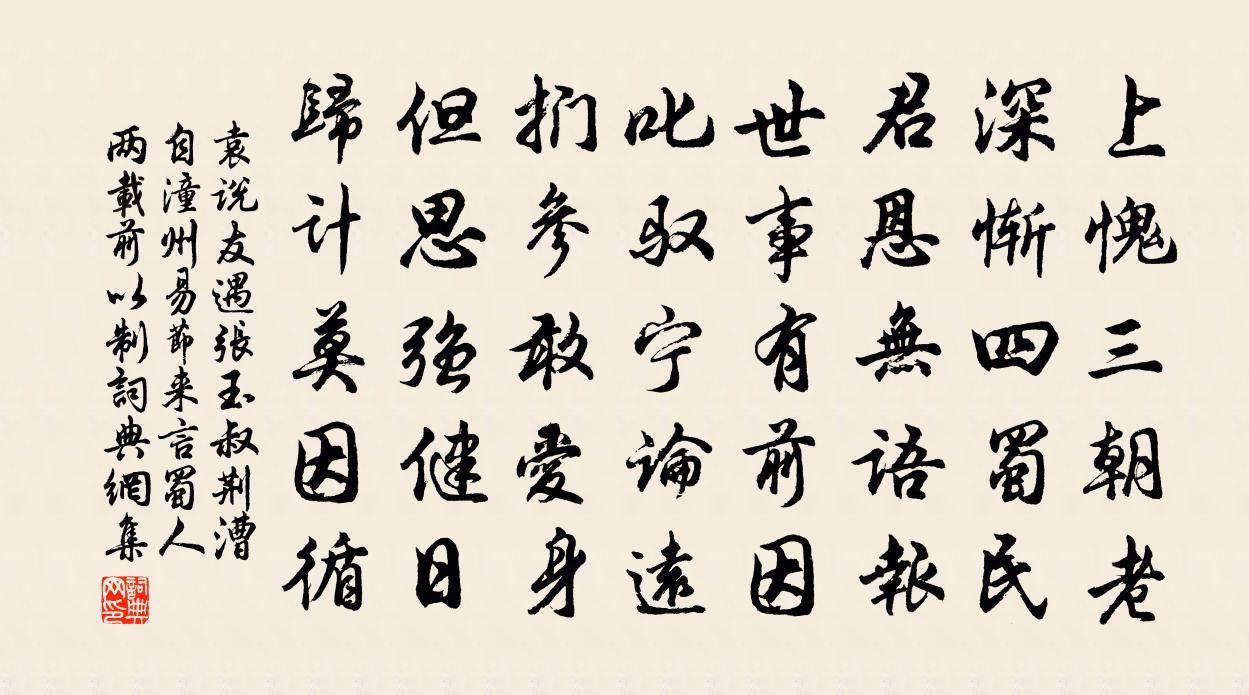 上愧三朝老
深惭四蜀民
君恩無語報
世事有前因
叱驭宁論遠
扪參敢愛身
但思强健日
歸计莫因循
袁说友遇張玉叔荆漕
自潼州易節来言蜀人
两載前以制詞典網集
詞典
网印